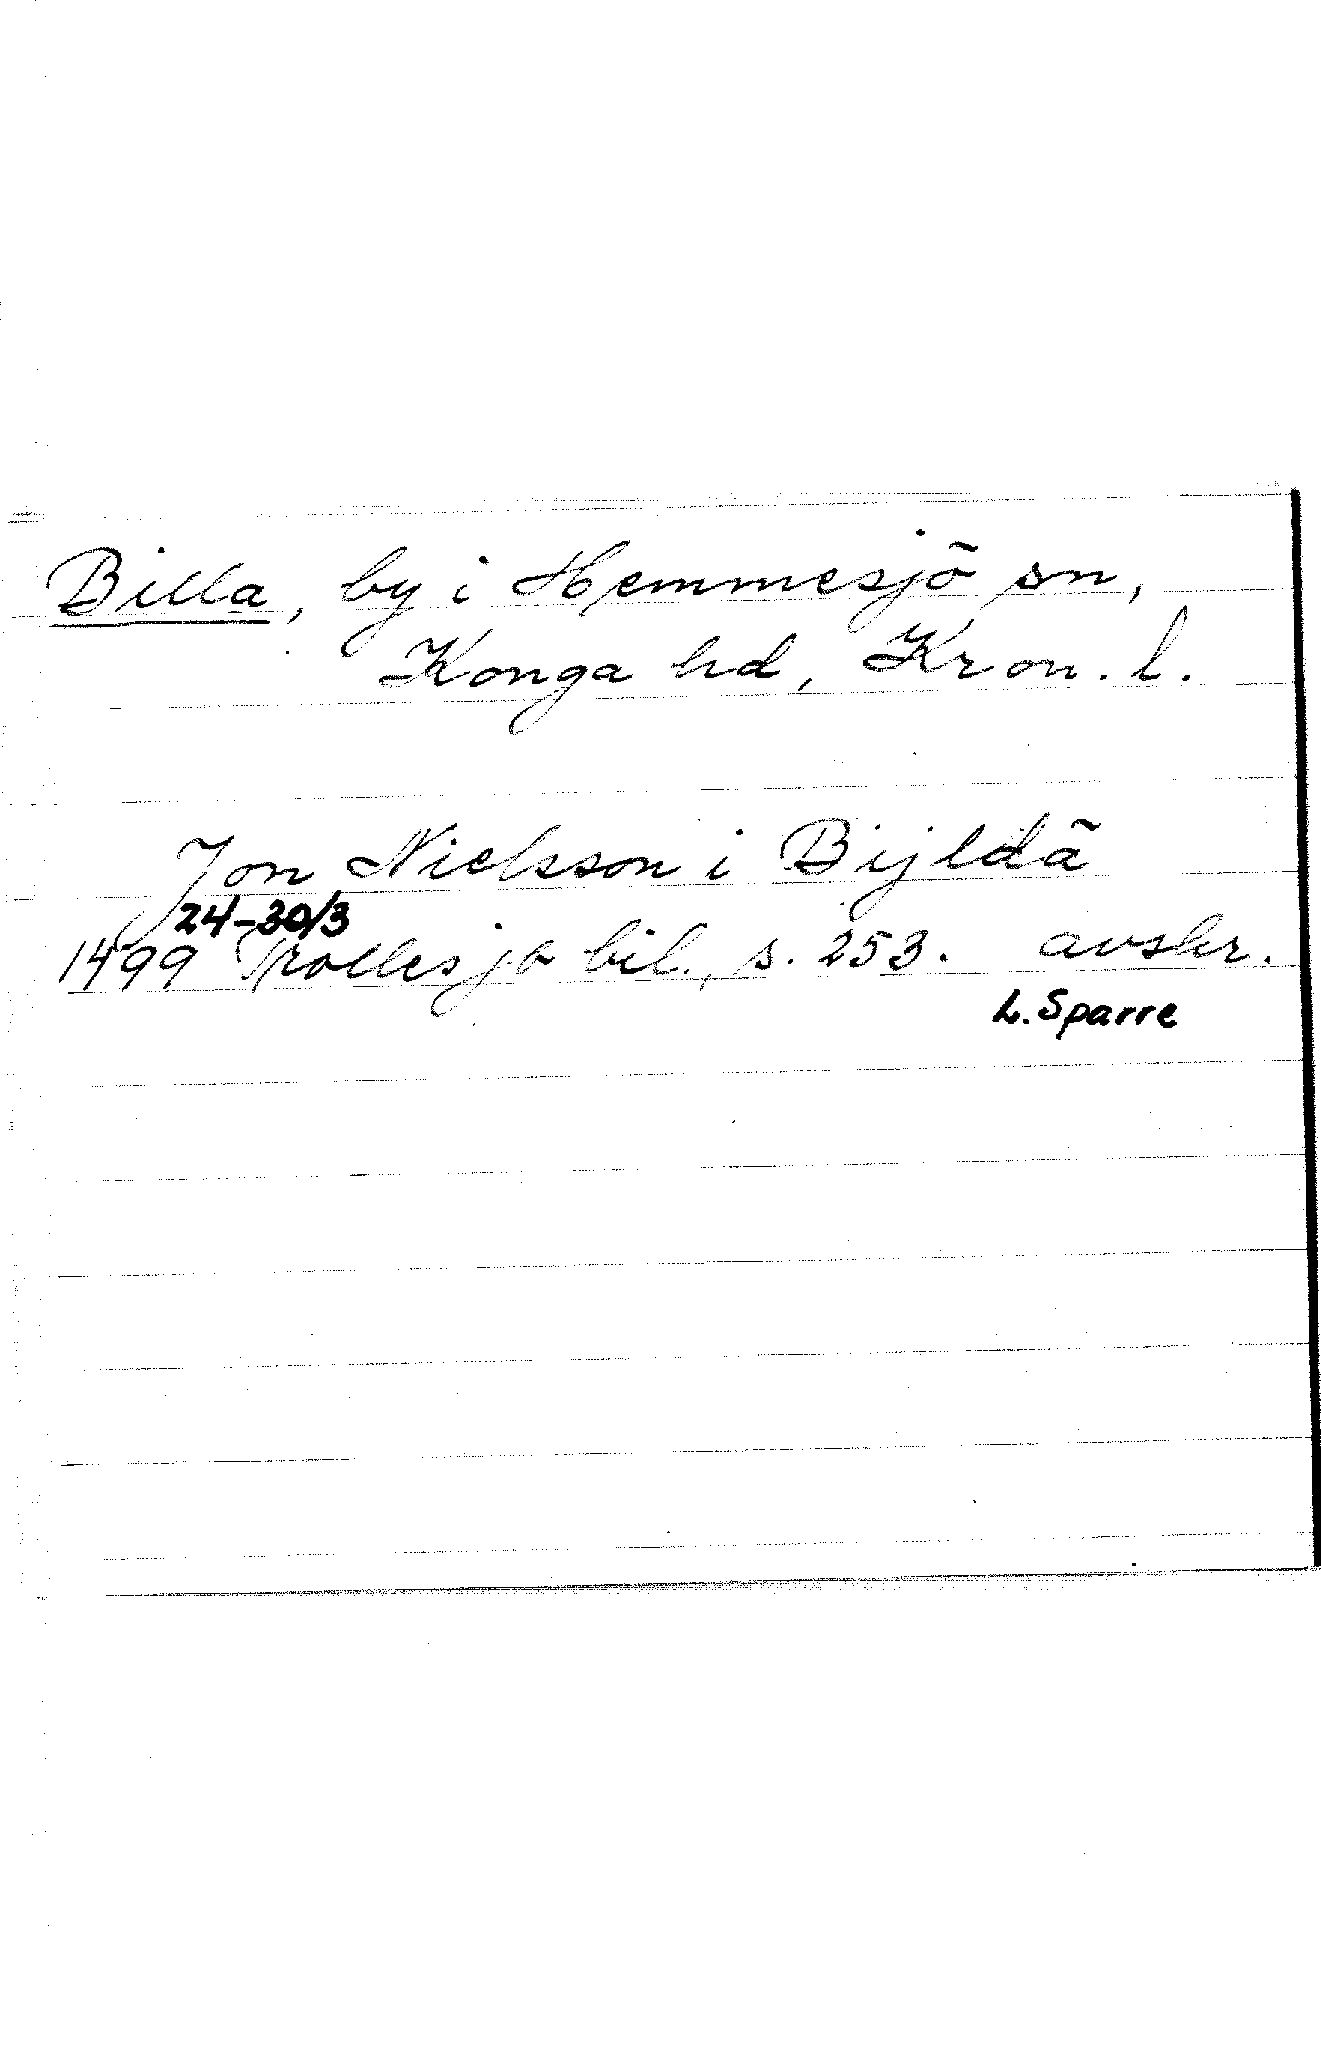 Billa, by i Hemmesjö sn,
Konga hd, Kron. l.
Jon Nielsson i Bijldä
24-30/3
1499 Trolles jb bil., s. 253. avskr.
L. Sparre